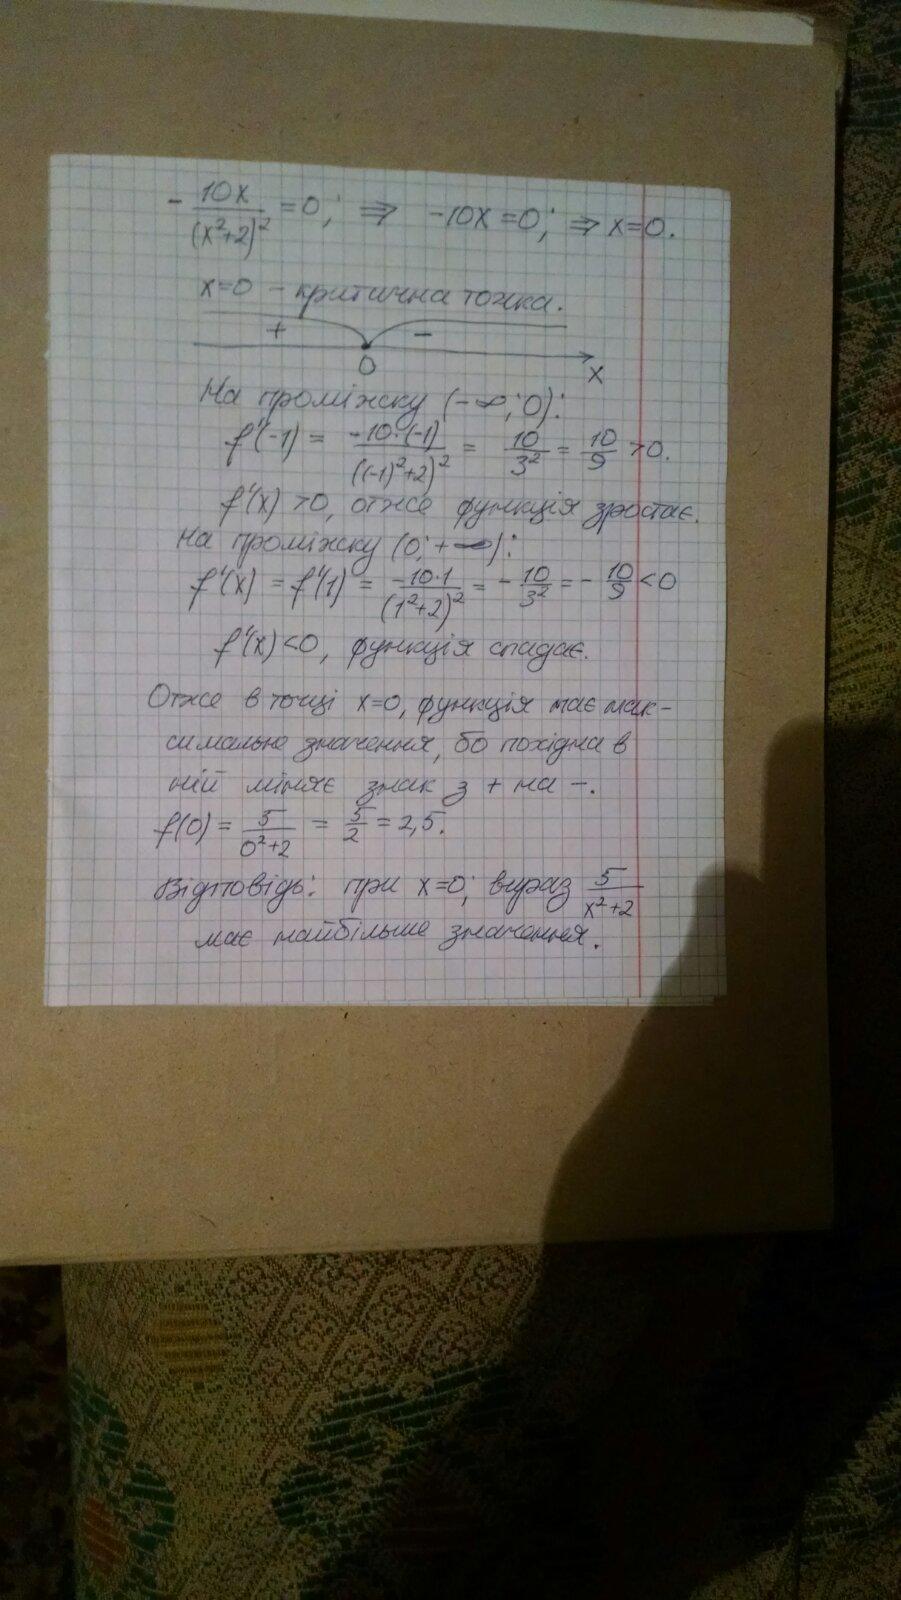 - 10x/(x²+2)² = 0; ⇒ -10x = 0; ⇒ x=0.
x=0 - критична точка.
+ -
0 x
На проміжку (-∞; 0):
f'(-1) = -10·(-1)/((-1)²+2)² = 10/3² = 10/9 >0.
f'(x) >0, отже функція зростає.
На проміжку (0; +∞):
f'(x) = f'(1) = -10·1/(1²+2)² = - 10/3² = - 10/9 <0
f'(x) <0, функція спадає.
Отже в точці x=0, функція має мак-
симальне значення, бо похідна в
ній міняє знак з + на -.
f(0) = 5/0²+2 = 5/2 = 2,5.
Відповідь: при x=0; вираз 5/x²+2
має найбільше значення.